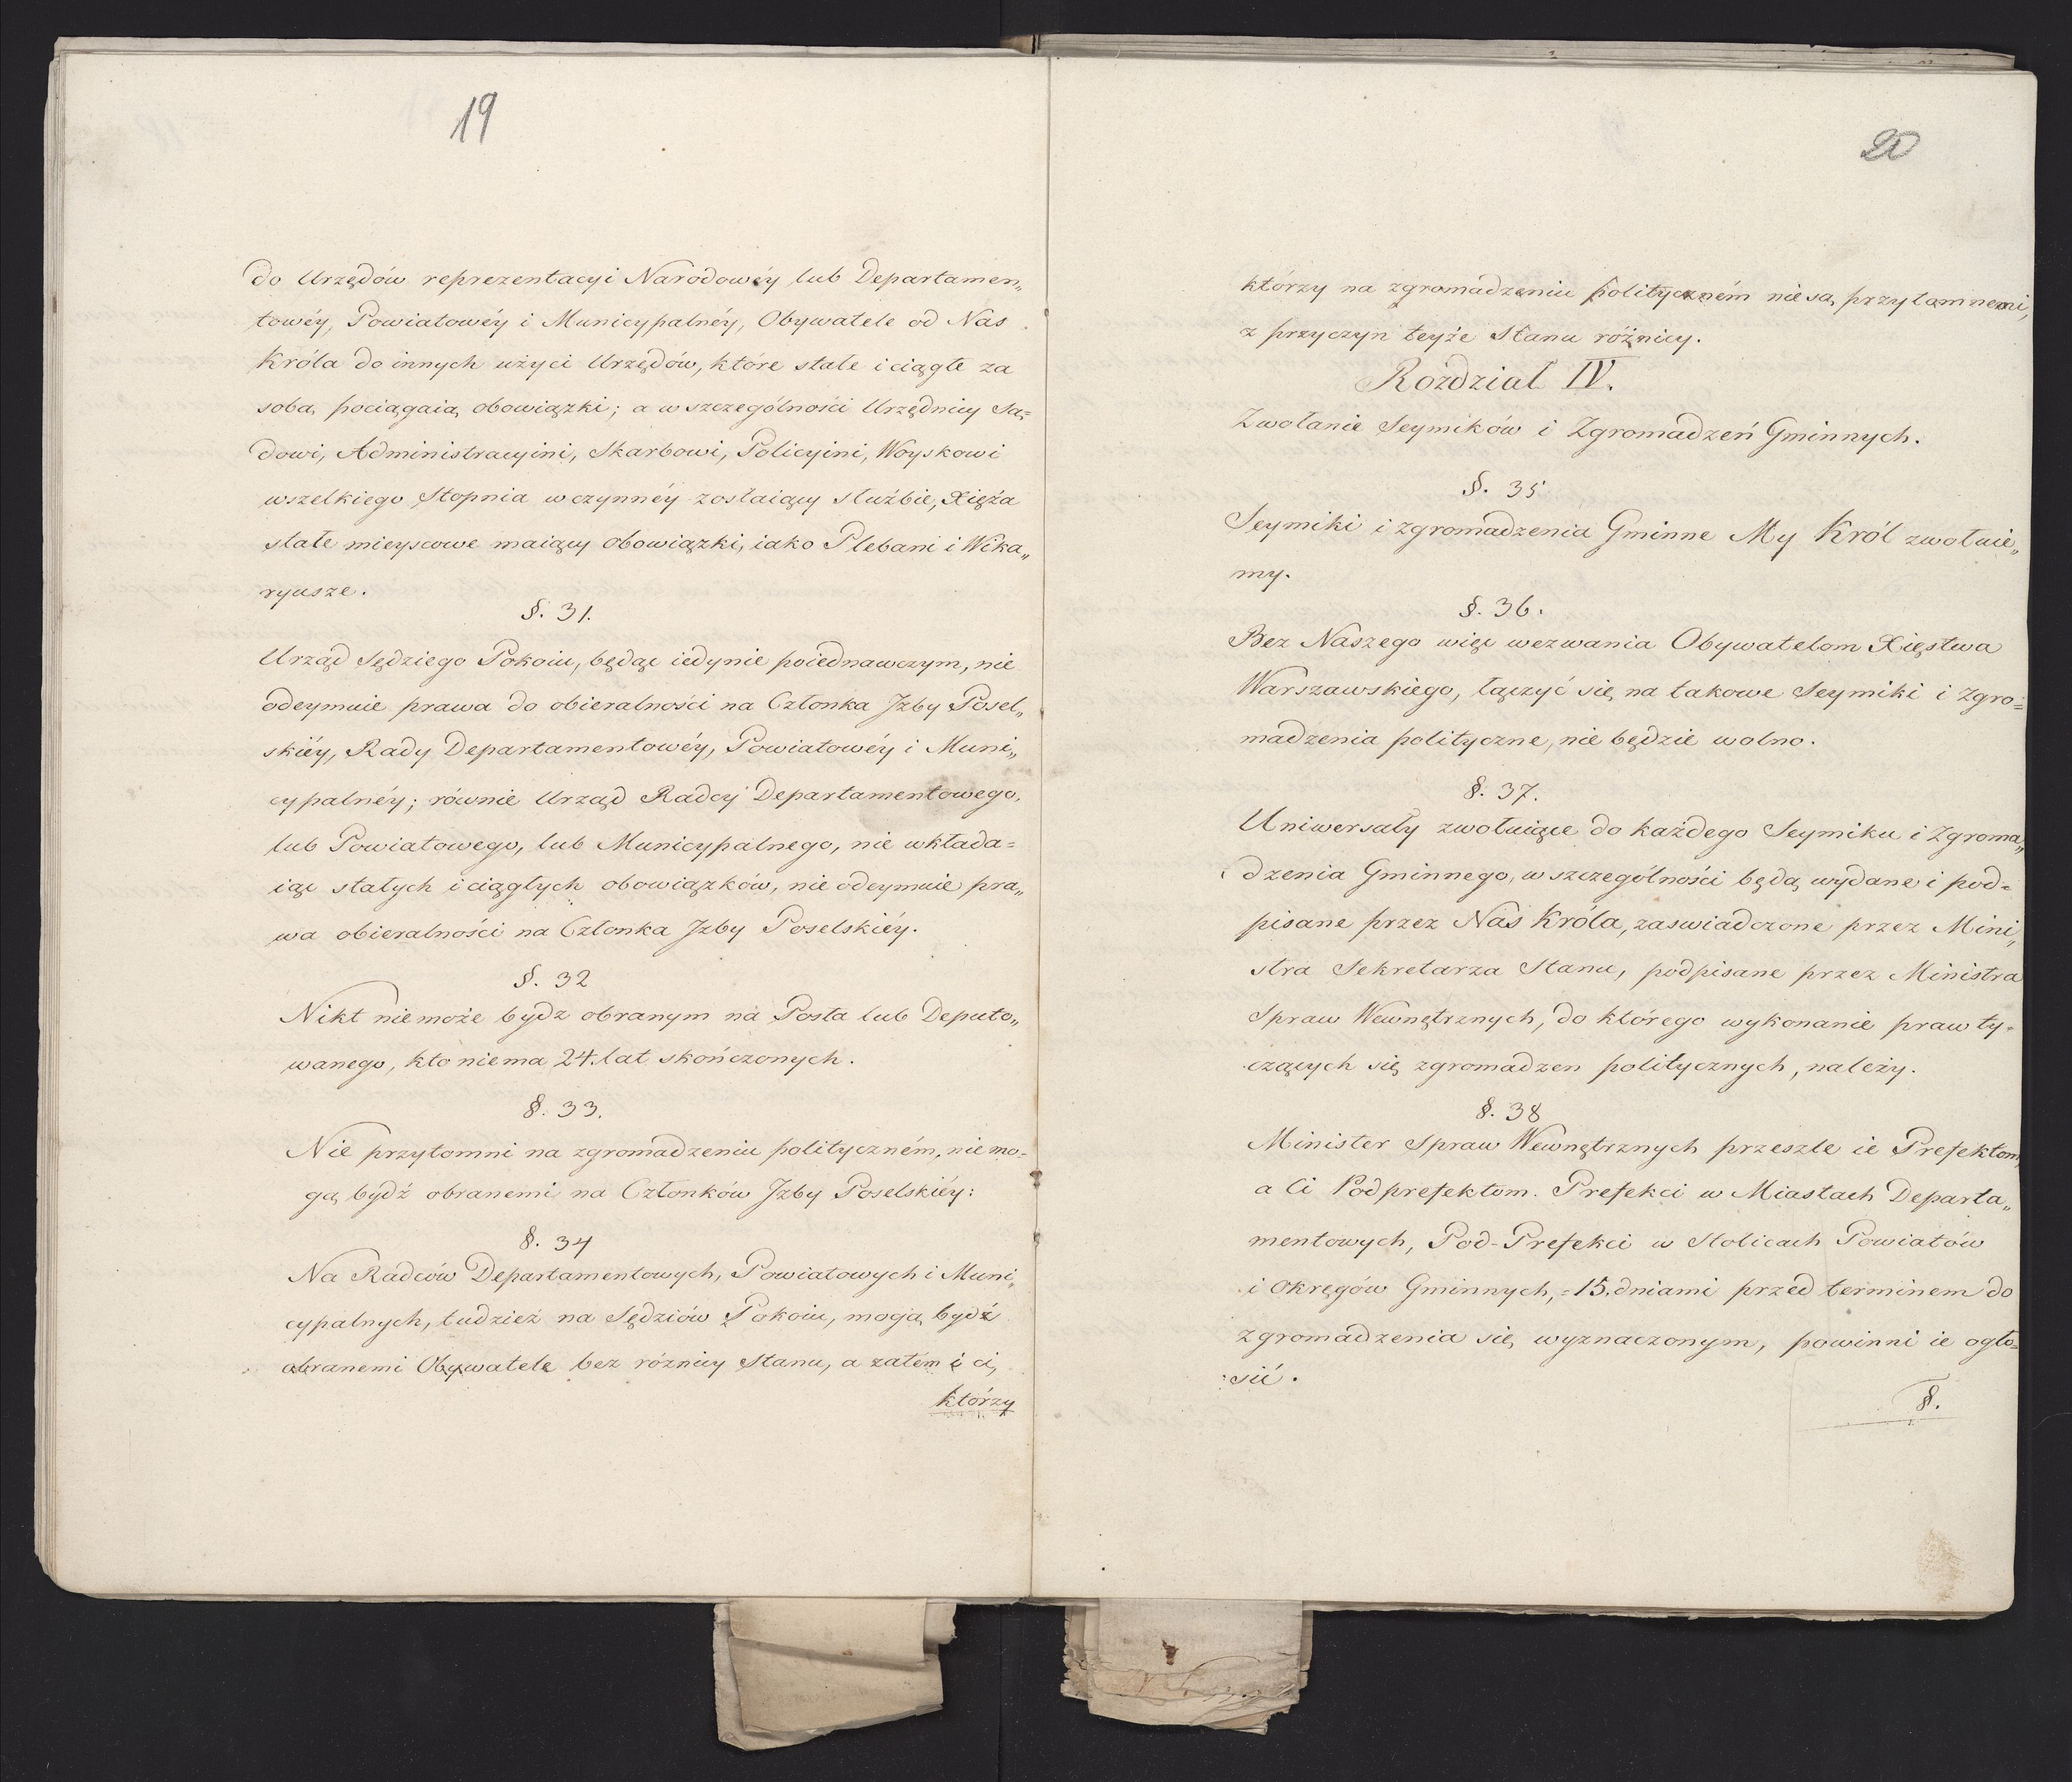 19
do Urzędów reprezentacyi Narodowéy lub Departamen„
towéy, Powiatowéy i Municypalnéy, Obywatele od Nas
Króla do innych użyci Urzędów, które stale i ciągłe za
sobą pociągaią obowiązki; a w szczególności Urzędnicy Są=
dowi, Administracyini, Skarbowi, Policyini, Woyskowi
wszelkiego Stopnia w czynnéy zostaiący służbie, Xięża
stałe mieyscowe maiący obowiązki, iako Plebani i Wika„
ryusze.
§. 31.
Urząd Sędziego Pokoiu, będąc iedynie poiednawczym, nie
odeymuie prawa do obieralności na Członka Jzby Posel„
skiéy, Rady Departamentowéy, Powiatowéy i Muni„
cypalnéy; równie Urząd Radcy Departamentowego,
lub Powiatowego, lub Municypalnego, nie wkłada=
iąc stałych i ciągłych obowiązków, nie odeymuie pra„
wa obieralności na Członka Jzby Poselskiéy.
§. 32
Nikt niemoże bydz obranym na Posła lub Deputo„
wanego, kto niema 24. lat skończonych.
§. 33.
Nie przytomni na zgromadzeniu polityczném, nie mo=
gą bydź obranemi na Członków Jzby Poselskiéy:
§. 34
Na Radców Departamentowych, Powiatowych i Muni„
cypalnych, tudzież na Sędziów Pokoiu, mogą bydź
obranemi Obywatele bez róznicy Stanu, a zatém i ci,
którzy
20
którzy na zgromadzeniu polityczném nie są przytomnemi,
z przyczyn teyże Stanu różnicy.
Rozdział IV.
Zwołanie Seymików i Zgromadzeń Gminnych.
§. 35
Seymiki i zgromadzenia Gminne My Król zwołuie„
my.
§. 36.
Bez Naszego więc wezwania Obywatelom Xięstwa
Warszawskiego, łączyć się na takowe Seymiki i Zgro=
madzenia polityczne, nie będzie wolno.
§. 37.
Uniwersały zwołuiące do każdego Seymiku i Zgroma„
dzenia Gminnego, w szczególności będą wydane i pod=
pisane przez Nas Króla, zaswiadczone przez Mini„
stra Sekretarza Stanu, podpisane przez Ministra
Spraw Wewnętrznych, do którego wykonanie praw ty=
czących się zgromadzen politycznych, należy.
§. 38
Minister Spraw Wewnętrznych przeszle ie Prefektom,
a Ci Podprefektom. Prefekci w Miastach Departa„
mentowych, Pod-Prefekci w Stolicach Powiatów
i Okręgów Gminnych, =15. dniami przed terminem do
zgromadzenia się wyznaczonym, powinni ie ogło=
sić.
§.